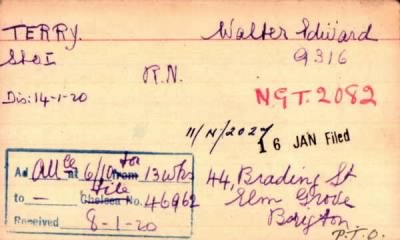 TERRY. Walter Edward
Sto I G316
R.N.
Dis: 14-1-20 NGT. 2082
11/N/2027 16 JAN Filed
Ad All ce at 6/10 from for 13 wks
File
to — Chelsea No. 46962
Received 8-1-20
44, Brading St
Elm Grove
Brigton
P.T.O.